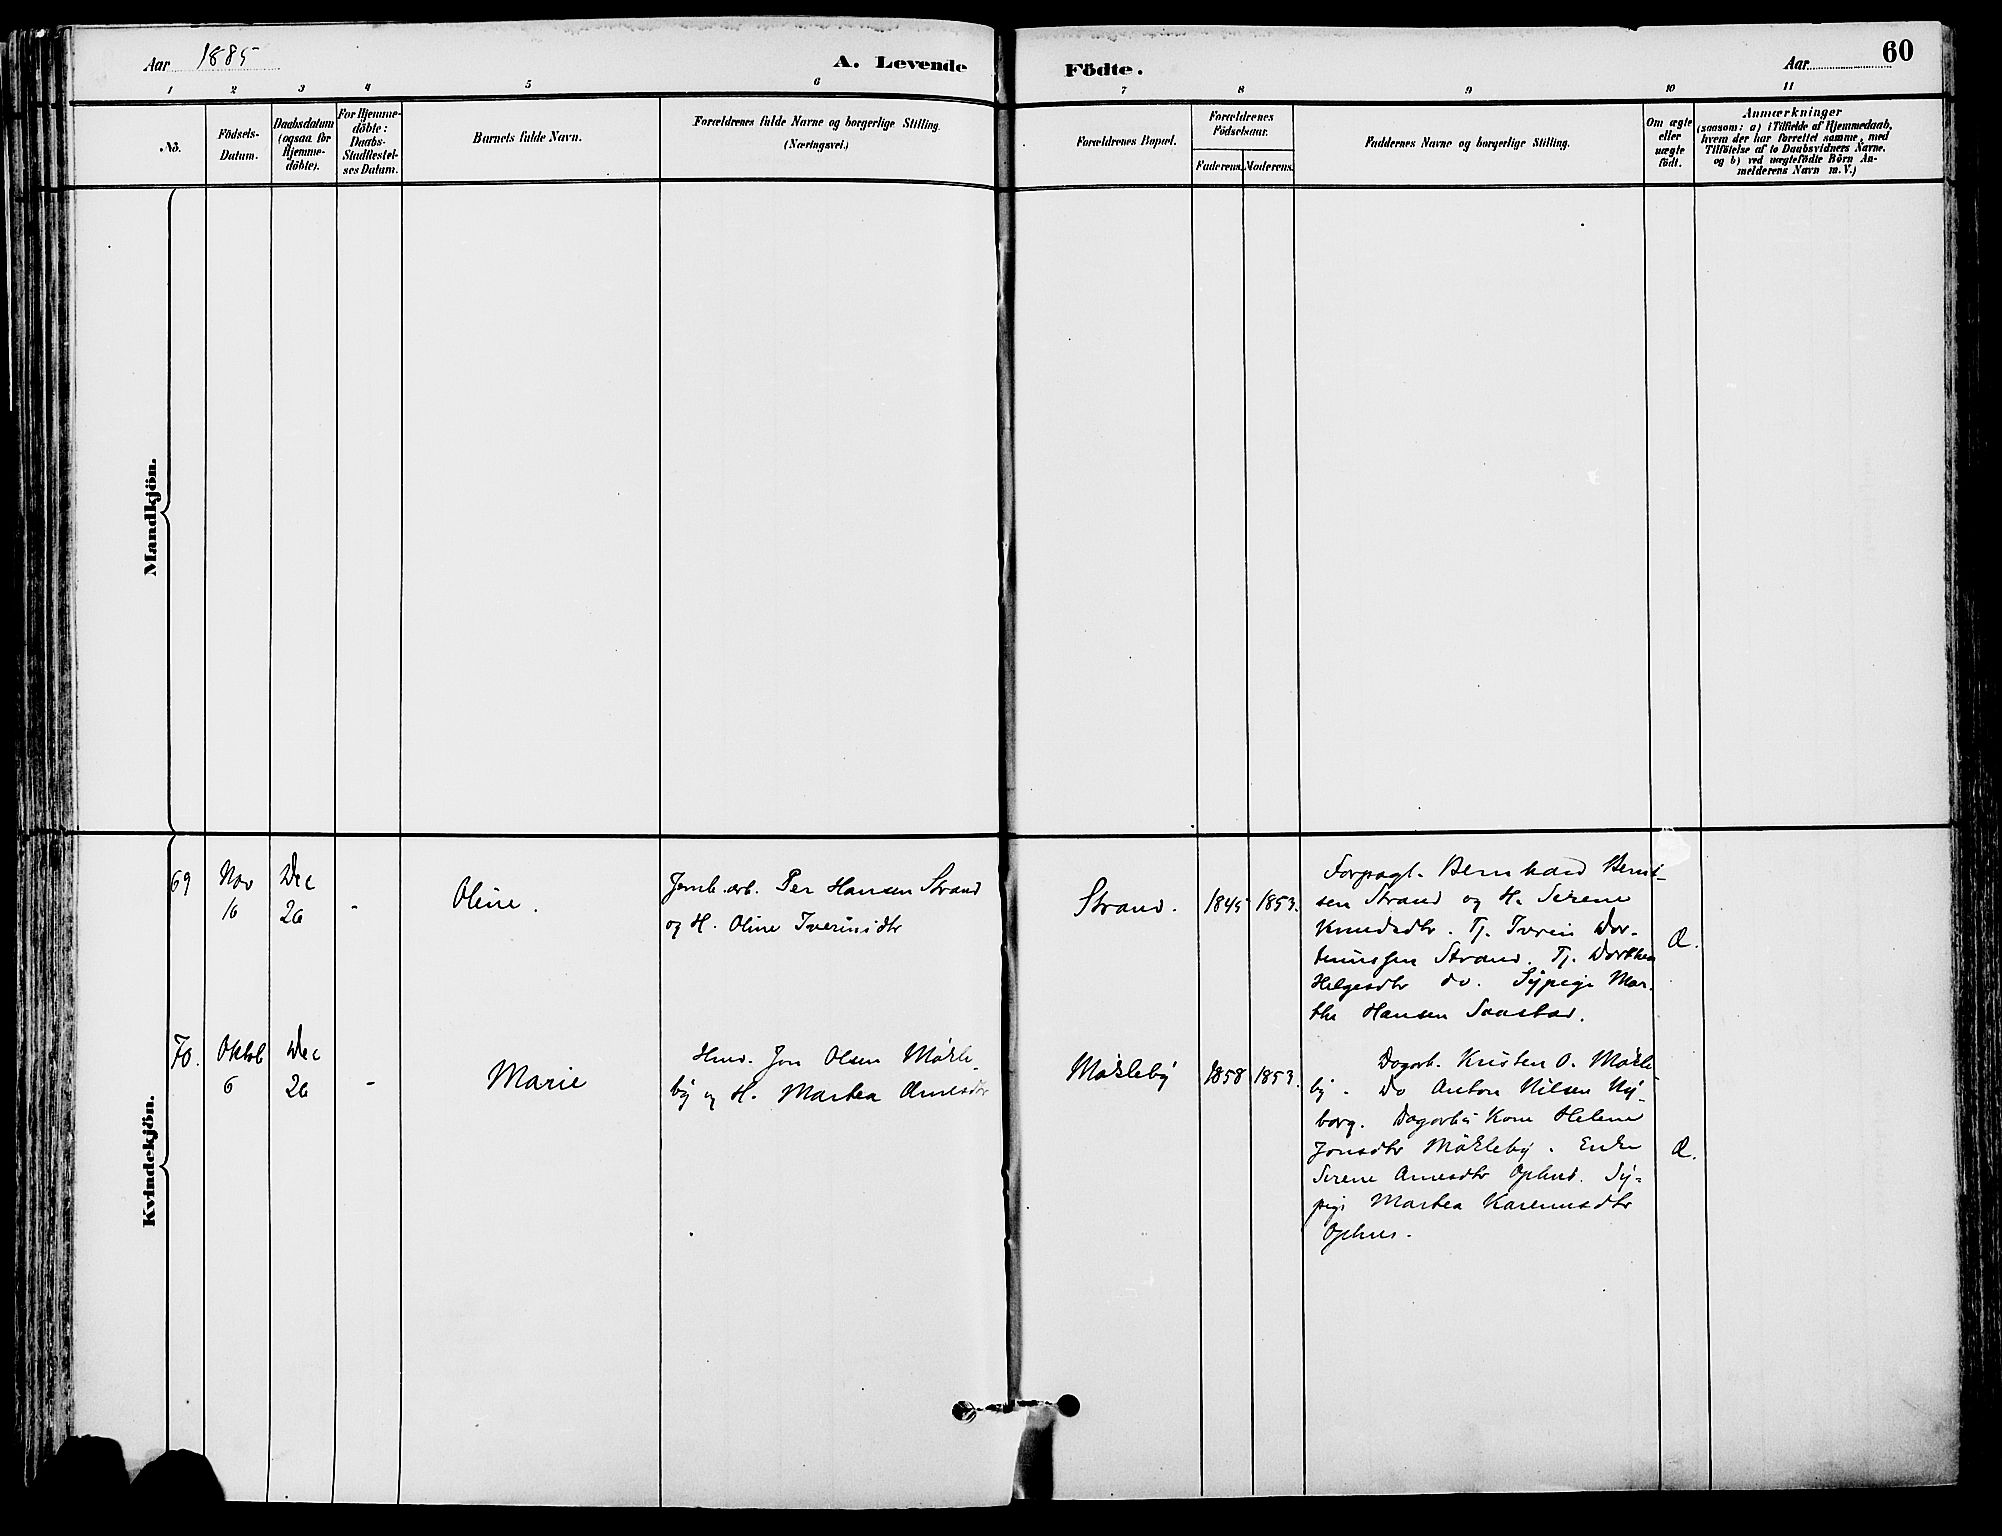 Aar 1885
A. Levende
Födte.
Aar
60
1 2 3 4 5 6 7 8 9 10 11
No.
Födsels-
Datum.
Daabsdatum
(ogsaa for
Hjemme-
döbte).
For Hjemme-
döbte:
Daabs-
Stadfæstel-
ses Datum.
Barnets fulde Navn.
Forældrenes fulde Navne og borgerlige Stilling.
(Næringsvei.)
Forældrenes Bopæl.
Forældrenes
Födselsaar.
Faderens.
Moderens.
Faddernes Navne og borgerlige Stilling.
Om ægte
eller
uægte
födt.
Anmærkninger
(saasom: a) i Tilfælde af Hjemmedaab,
hvem der har forrettet samme, med
Tilföielse af to Daabsvidners Navne.
og b) ved uægtefödte Börn An-
melderens Navn m.V.)
Mandkjön.
Kvindekjön.
69
Nov
16
Dec
26
-
Oline.
Jernb.arb. Per Hansen Strand
og H. Oline Iverinsdtr
Strand.
1845
1853.
Forpagt. Bernhard Bernt-
sen Strand og H. Sirene
Knudsdtr. Tj. Iverin
Strand. Tj. Dorthea
Helgesdtr do. Sypige Mar-
the Hansen Saastad.
Æ.
70.
Oktob
6
Dec
26
-
Marie
Hmd. Jon Olsen Mökle-
by og H. Martea Arnesdtr
Mökleby
1858
1853.
Dagarb. Kristen O. Mökle-
by. Do Anton Nilsen Ny-
borg. Dagarbs Kone Helene
Jonsdtr Mökleby. Enke
Sirene Arnesdtr Ophus. Sy-
pige Martea Karenusdtr
Ophus.
Æ.